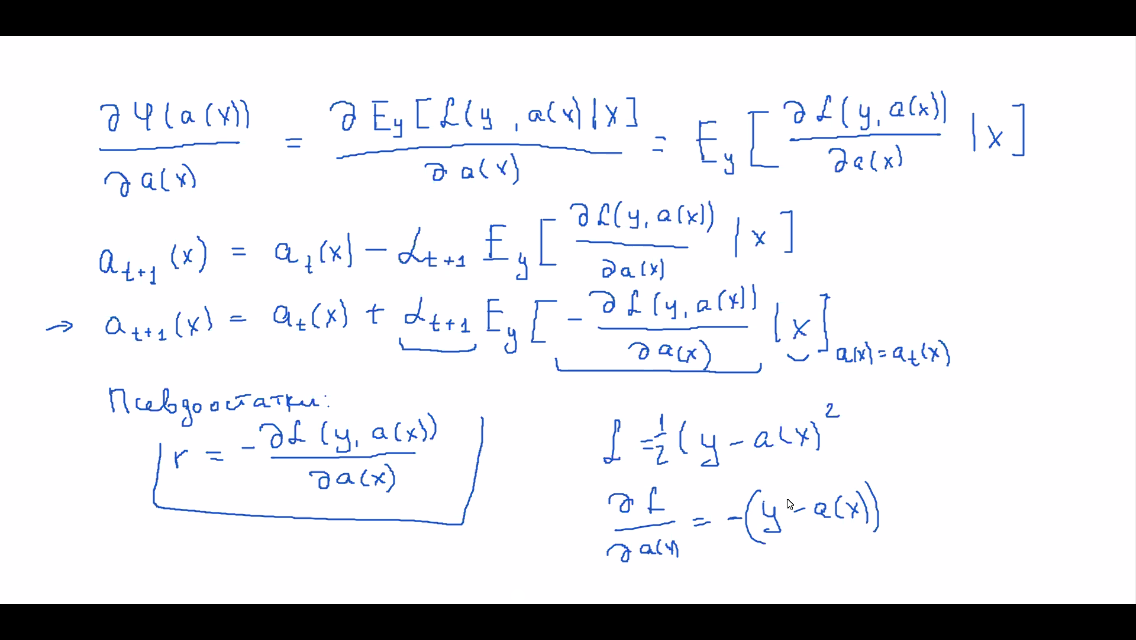 ∂Ψ(a(x))/∂a(x) = ∂E_y[ℒ(y, a(x)|x]/∂a(x) = E_y[∂ℒ(y, a(x))/∂a(x) | x]
a_{t+1}(x) = a_t(x) − α_{t+1} E_y[∂ℒ(y, a(x))/∂a(x) | x]
→ a_{t+1}(x) = a_t(x) + α_{t+1} E_y[−∂ℒ(y, a(x))/∂a(x) | x]_{a(x)=a_t(x)}
Псевдоостатки:
r = −∂ℒ(y, a(x))/∂a(x)
ℒ = 1/2 (y − a(x))^2
∂ℒ/∂a(x) = −(y − a(x))